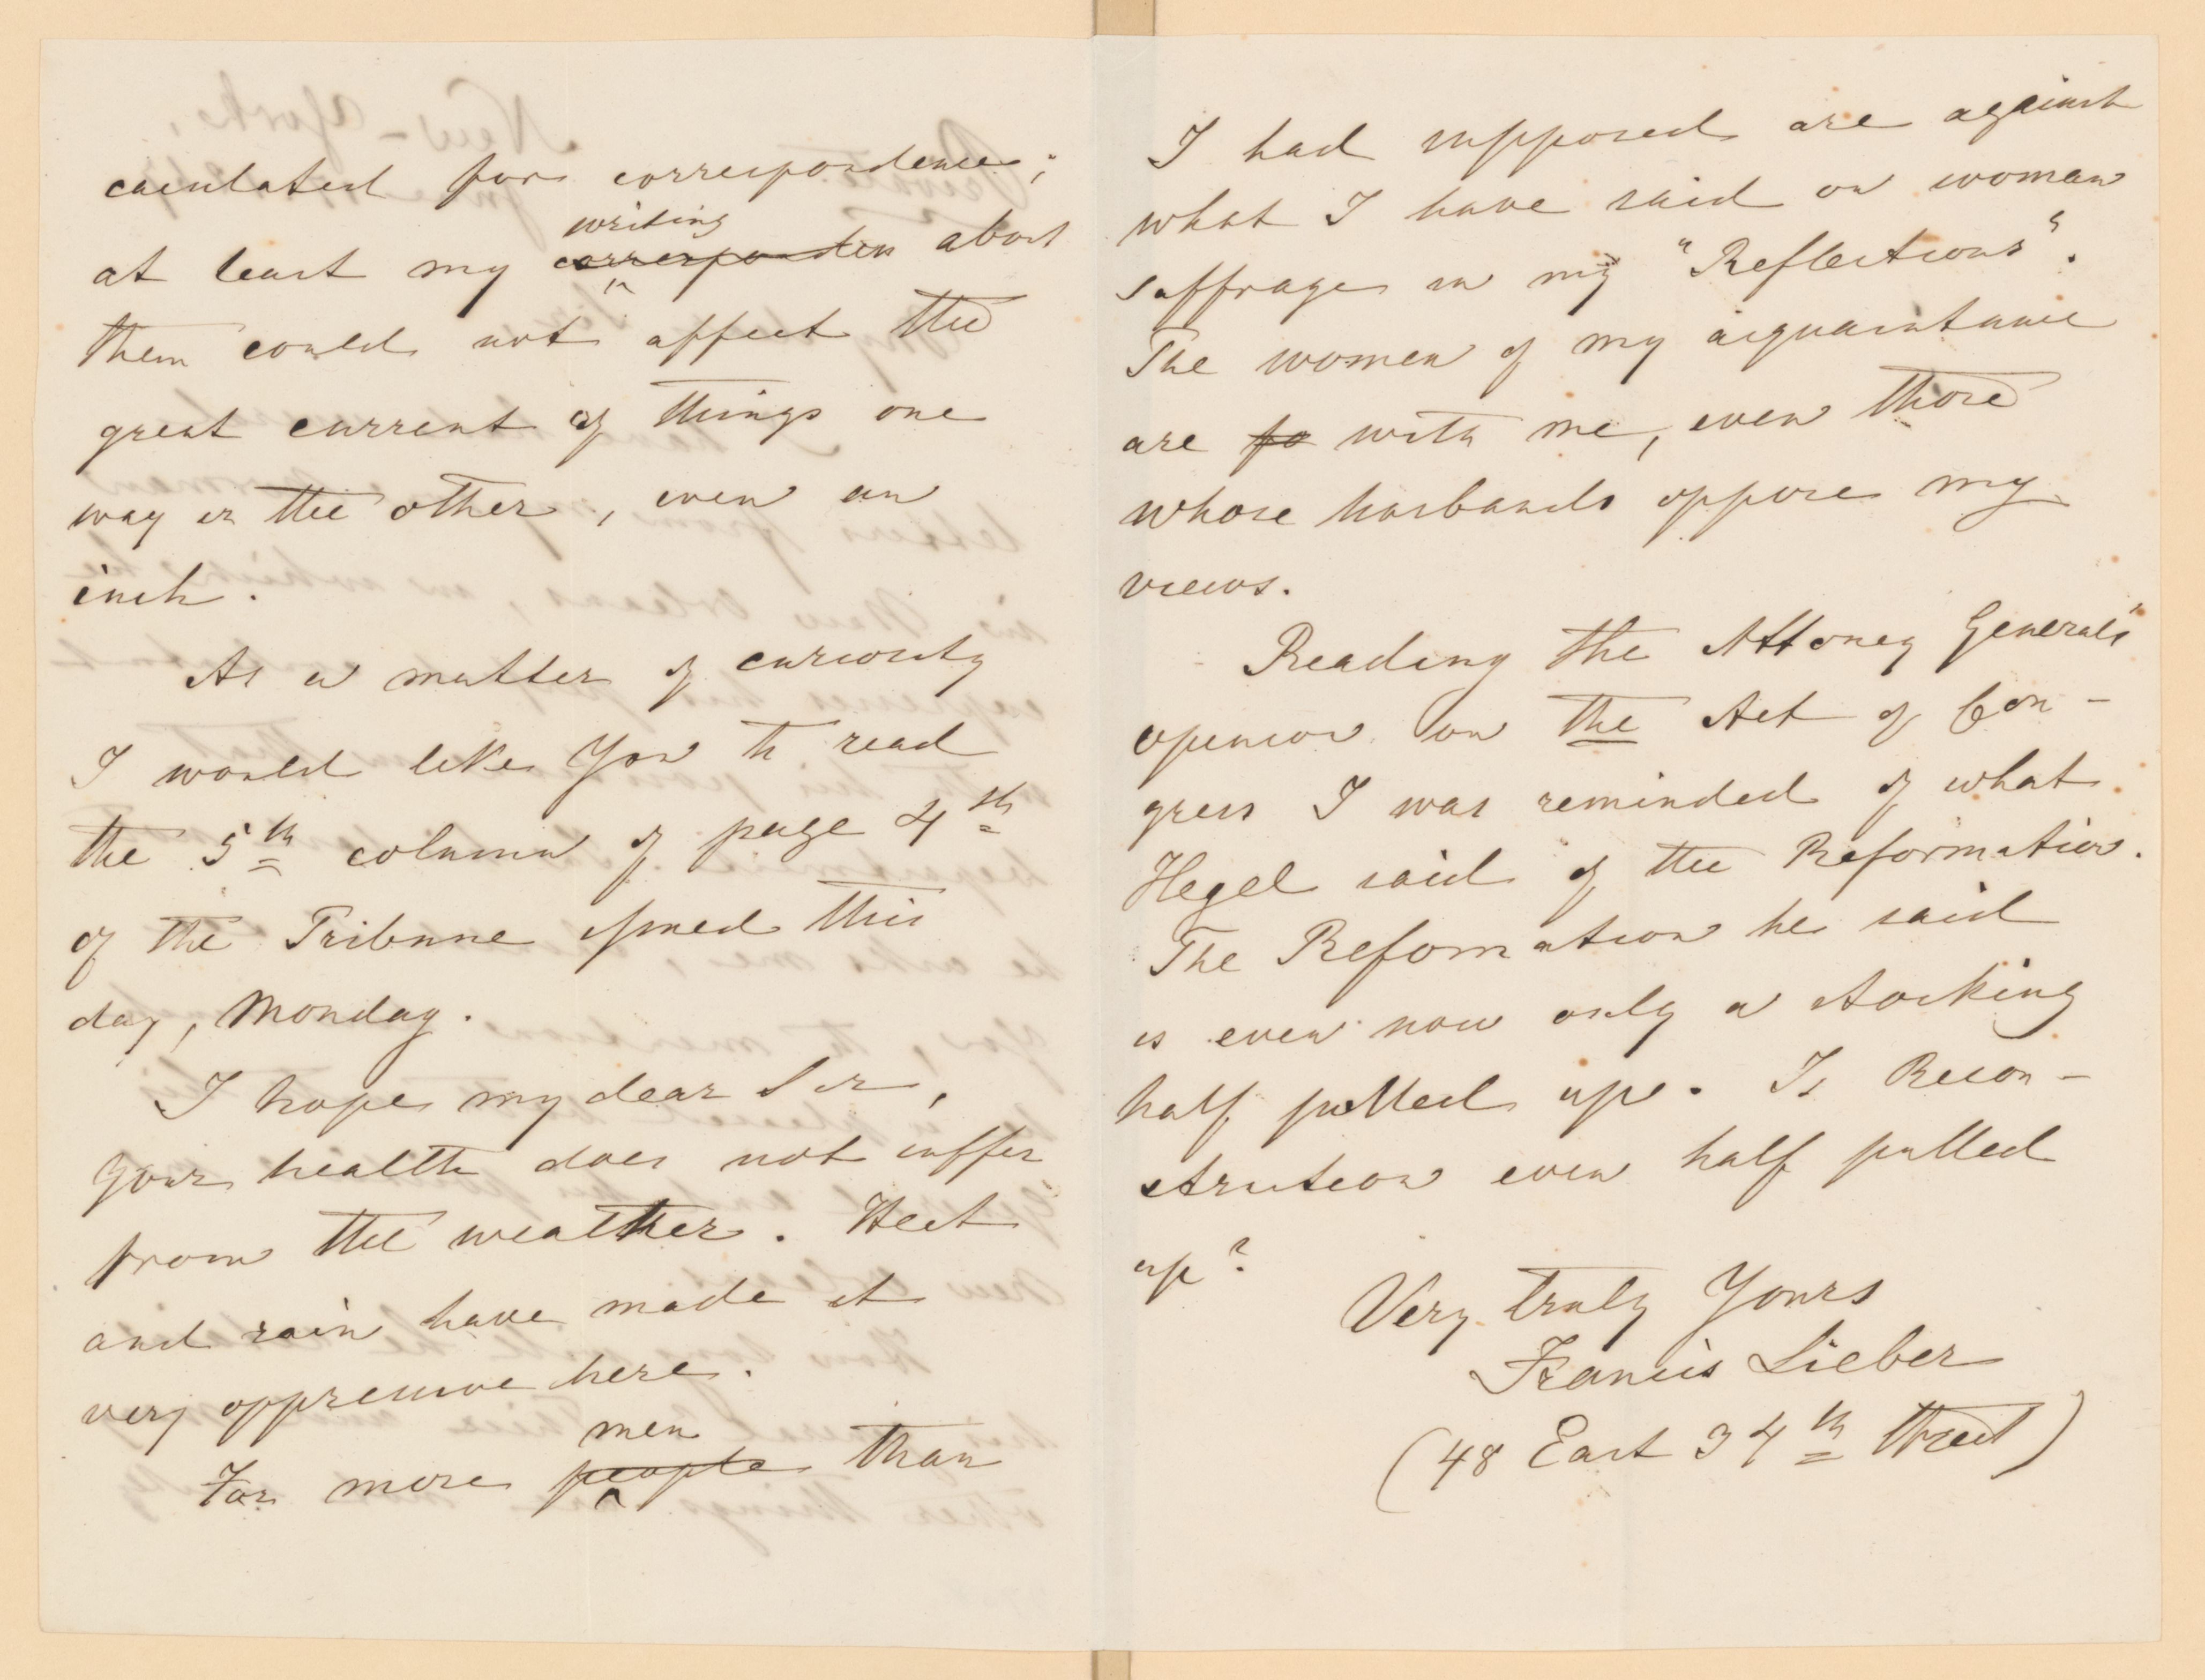 caculated for correspondence;
writing
at least my correspondten about
them could not affect the
great current of things one
way or the other, even an
inch.
As a matter of curiosity
I would like You to read
the 5th column of page 4th
of the Tribune issued this
day, Monday.
I hope my dear Sir,
your health does not suffer
from the weather. Heat
and rain have made it
very oppressive here.
men
Far more people than
I had supposed are against
what I have said on woman
suffrage in my "Reflections".
The women of my acquaintance
are fo with me, even those
whose husbands oppose my
views.
Reading the Attorney General's
opinion on the Act of Con-
gress I was reminded of what
Hegel said of the Reformation.
The Reformation he said
is even now only a stocking
half pulled up. Is Recon-
struction even half pulled
up?
Very truly Yours
Francis Lieber
(48 East 34th Street)